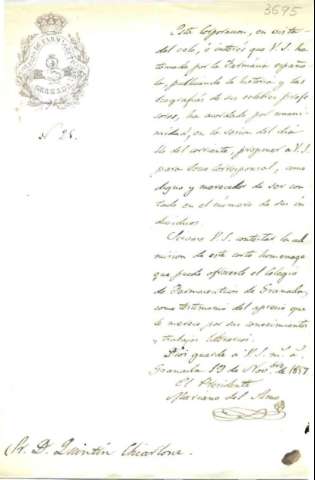 3695
COLEGIO DE FARMACEUTICOS
GRANADA
N. 28.
Esta Corporacion, en vista
del celo, é interés que V.S. ha
tomado por la Farmácia españo-
la, publicando la historia y las
biografías de sus celebres profe-
sores, ha acordado por unani-
midad, en la sesion del dia
del corriente, proponer á V.S.
para Socio Corresponsal, como
digno y merecedor de ser con-
tado en el número de sus in-
dividuos.
Sirvase V.S. contestar la ad-
mision de este corto homenage
que puede ofrecerle el Colegio
de Farmaceuticos de Granada,
como testimonio del aprecio que
le merece por sus conocimientos
y trabajos literarios.
Dios guarde á V.S. m.s a.s
Granada 13 de Nov.bre de 1857
El Presidente
Mariano del Amo
Sr. D. Quintín Chiarlone.